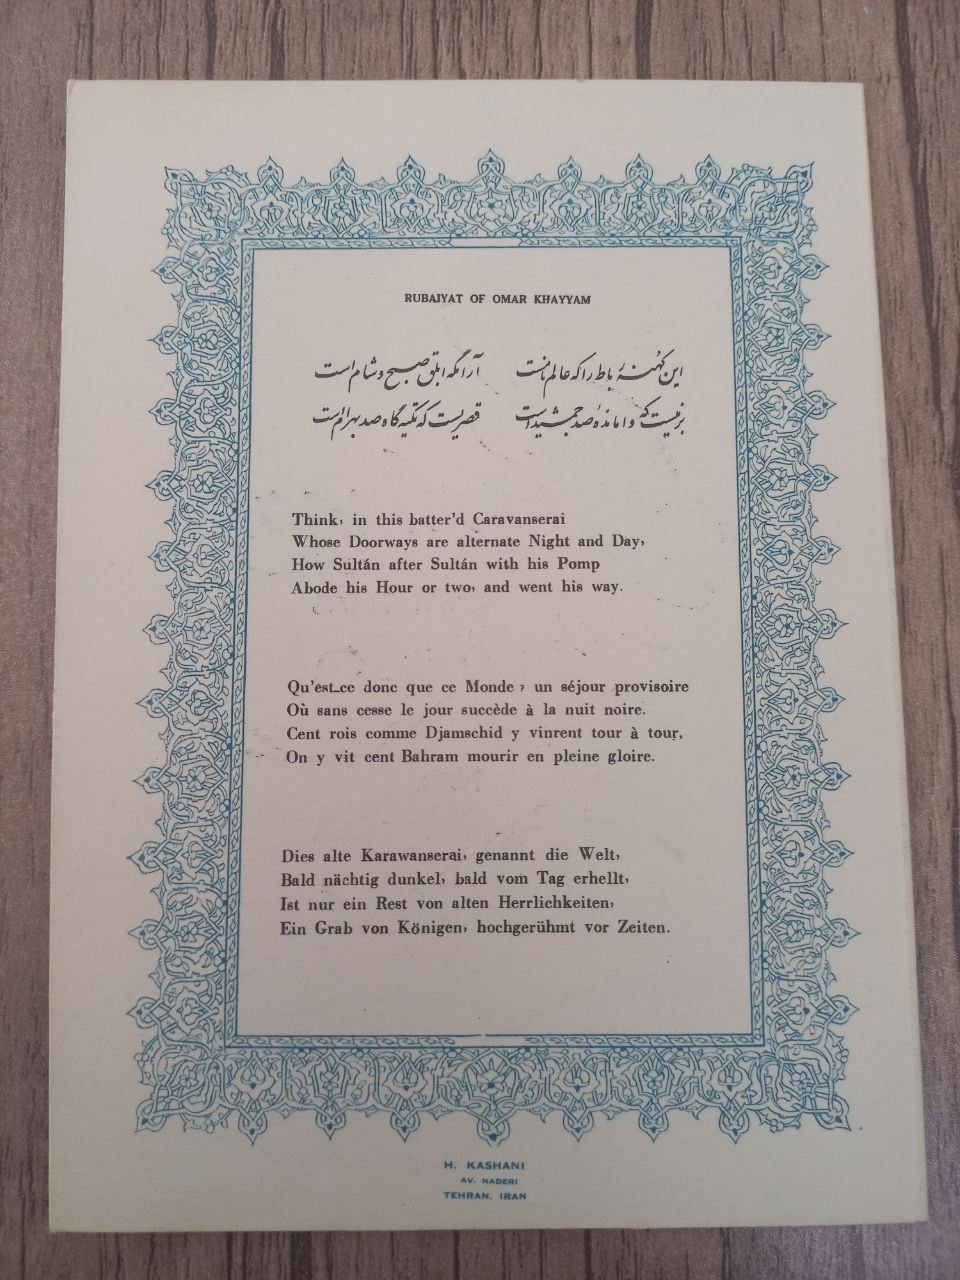 RUBAIYAT OF OMAR KHAYYAM
این کهنه رباط را که عالم نامست آرامگه ابلق صبح و شام است
بزمیست که واماندهٔ صد جمشید است قصریست که تکیه گاه صد بهرام است
Think, in this batter'd Caravanserai
Whose Doorways are alternate Night and Day,
How Sultán after Sultán with his Pomp
Abode his Hour or two, and went his way.
Qu'est-ce donc que ce Monde ? un séjour provisoire
Où sans cesse le jour succède à la nuit noire.
Cent rois comme Djamschid y vinrent tour à tour,
On y vit cent Bahram mourir en pleine gloire.
Dies alte Karawanserai, genannt die Welt,
Bald nächtig dunkel, bald vom Tag erhellt,
Ist nur ein Rest von alten Herrlichkeiten,
Ein Grab von Königen, hochgerühmt vor Zeiten.
H. KASHANI
AV. NADERI
TEHRAN, IRAN